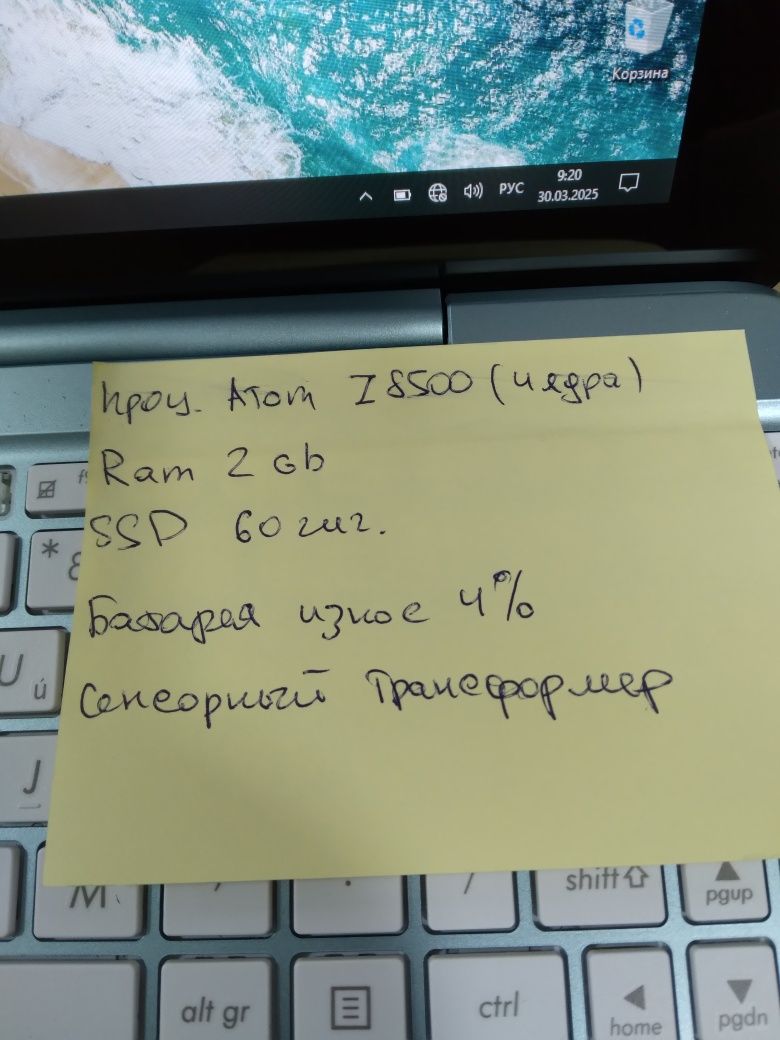 Корзина
РУС
9:20
30.03.2025
проц. Атом Z8500 (4 ядра)
Ram 2 Gb
SSD 60 гиг.
Батарея износ 4%
Сенсорный Трансформер
* 8
U ú
J
M , . / shift pgup
alt gr ctrl home pgdn